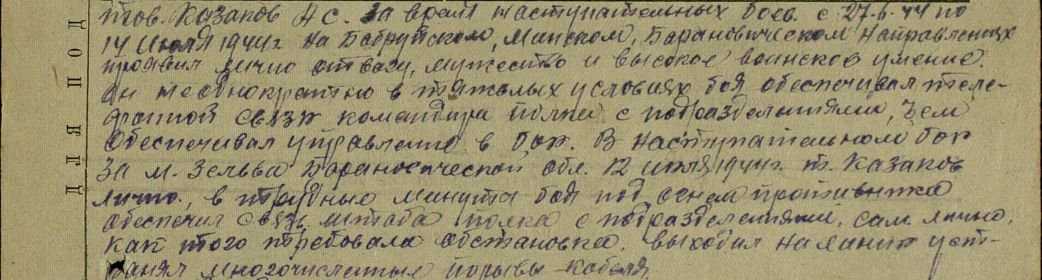 тов. Казаков А С. за время наступательных боев. с 27.6.44 по
14 июля 1944г на Бобруйском, Минском, Барановическом направлениях
проявил лично отвагу, мужество и высокое воинское умение.
он неоднократно в тяжелых условиях боя обеспечивал теле-
фонной связью командира полка с подразделениями, чем
обеспечивал управление в бою. В наступательном бою
за м. Зельва Барановической обл. 12 июля 1944г. т. Казаков
лично, в трудные минуты боя под огнем противника
обеспечил связь штаба полка с подразделениями, сам лично,
как того требовала обстановка, выходил на линию уст-
ранял многочисленные порывы кабеля
Д О П О Л